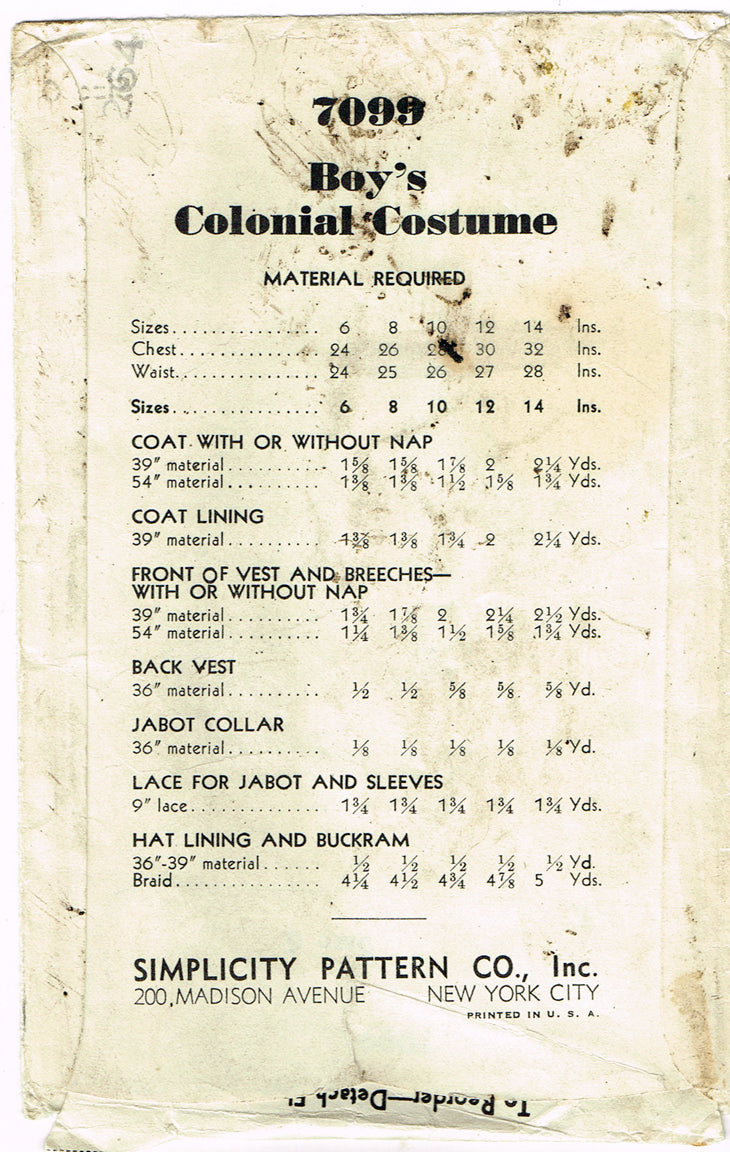 264
7099
Boy's
Colonial Costume
MATERIAL REQUIRED
Sizes............... 6 8 10 12 14 Ins.
Chest............... 24 26 28 30 32 Ins.
Waist............... 24 25 26 27 28 Ins.
Sizes............... 6 8 10 12 14 Ins.
COAT WITH OR WITHOUT NAP
39" material.......... 1⅝ 1⅝ 1⅞ 2 2¼ Yds.
54" material.......... 1⅜ 1⅜ 1½ 1⅝ 1¾ Yds.
COAT LINING
39" material.......... 1⅜ 1⅜ 1¾ 2 2¼ Yds.
FRONT OF VEST AND BREECHES—
WITH OR WITHOUT NAP
39" material.......... 1¾ 1⅞ 2 2¼ 2½ Yds.
54" material.......... 1¼ 1⅜ 1½ 1⅝ 1¾ Yds.
BACK VEST
36" material.......... ½ ½ ⅝ ⅝ ⅝ Yd.
JABOT COLLAR
36" material.......... ⅛ ⅛ ⅛ ⅛ ⅛ Yd.
LACE FOR JABOT AND SLEEVES
9" lace.............. 1¾ 1¾ 1¾ 1¾ 1¾ Yds.
HAT LINING AND BUCKRAM
36"-39" material...... ½ ½ ½ ½ ½ Yd.
Braid............... 4¼ 4½ 4¾ 4⅞ 5 Yds.
SIMPLICITY PATTERN CO., Inc.
200, MADISON AVENUE NEW YORK CITY
PRINTED IN U. S. A.
To Reorder—Detach